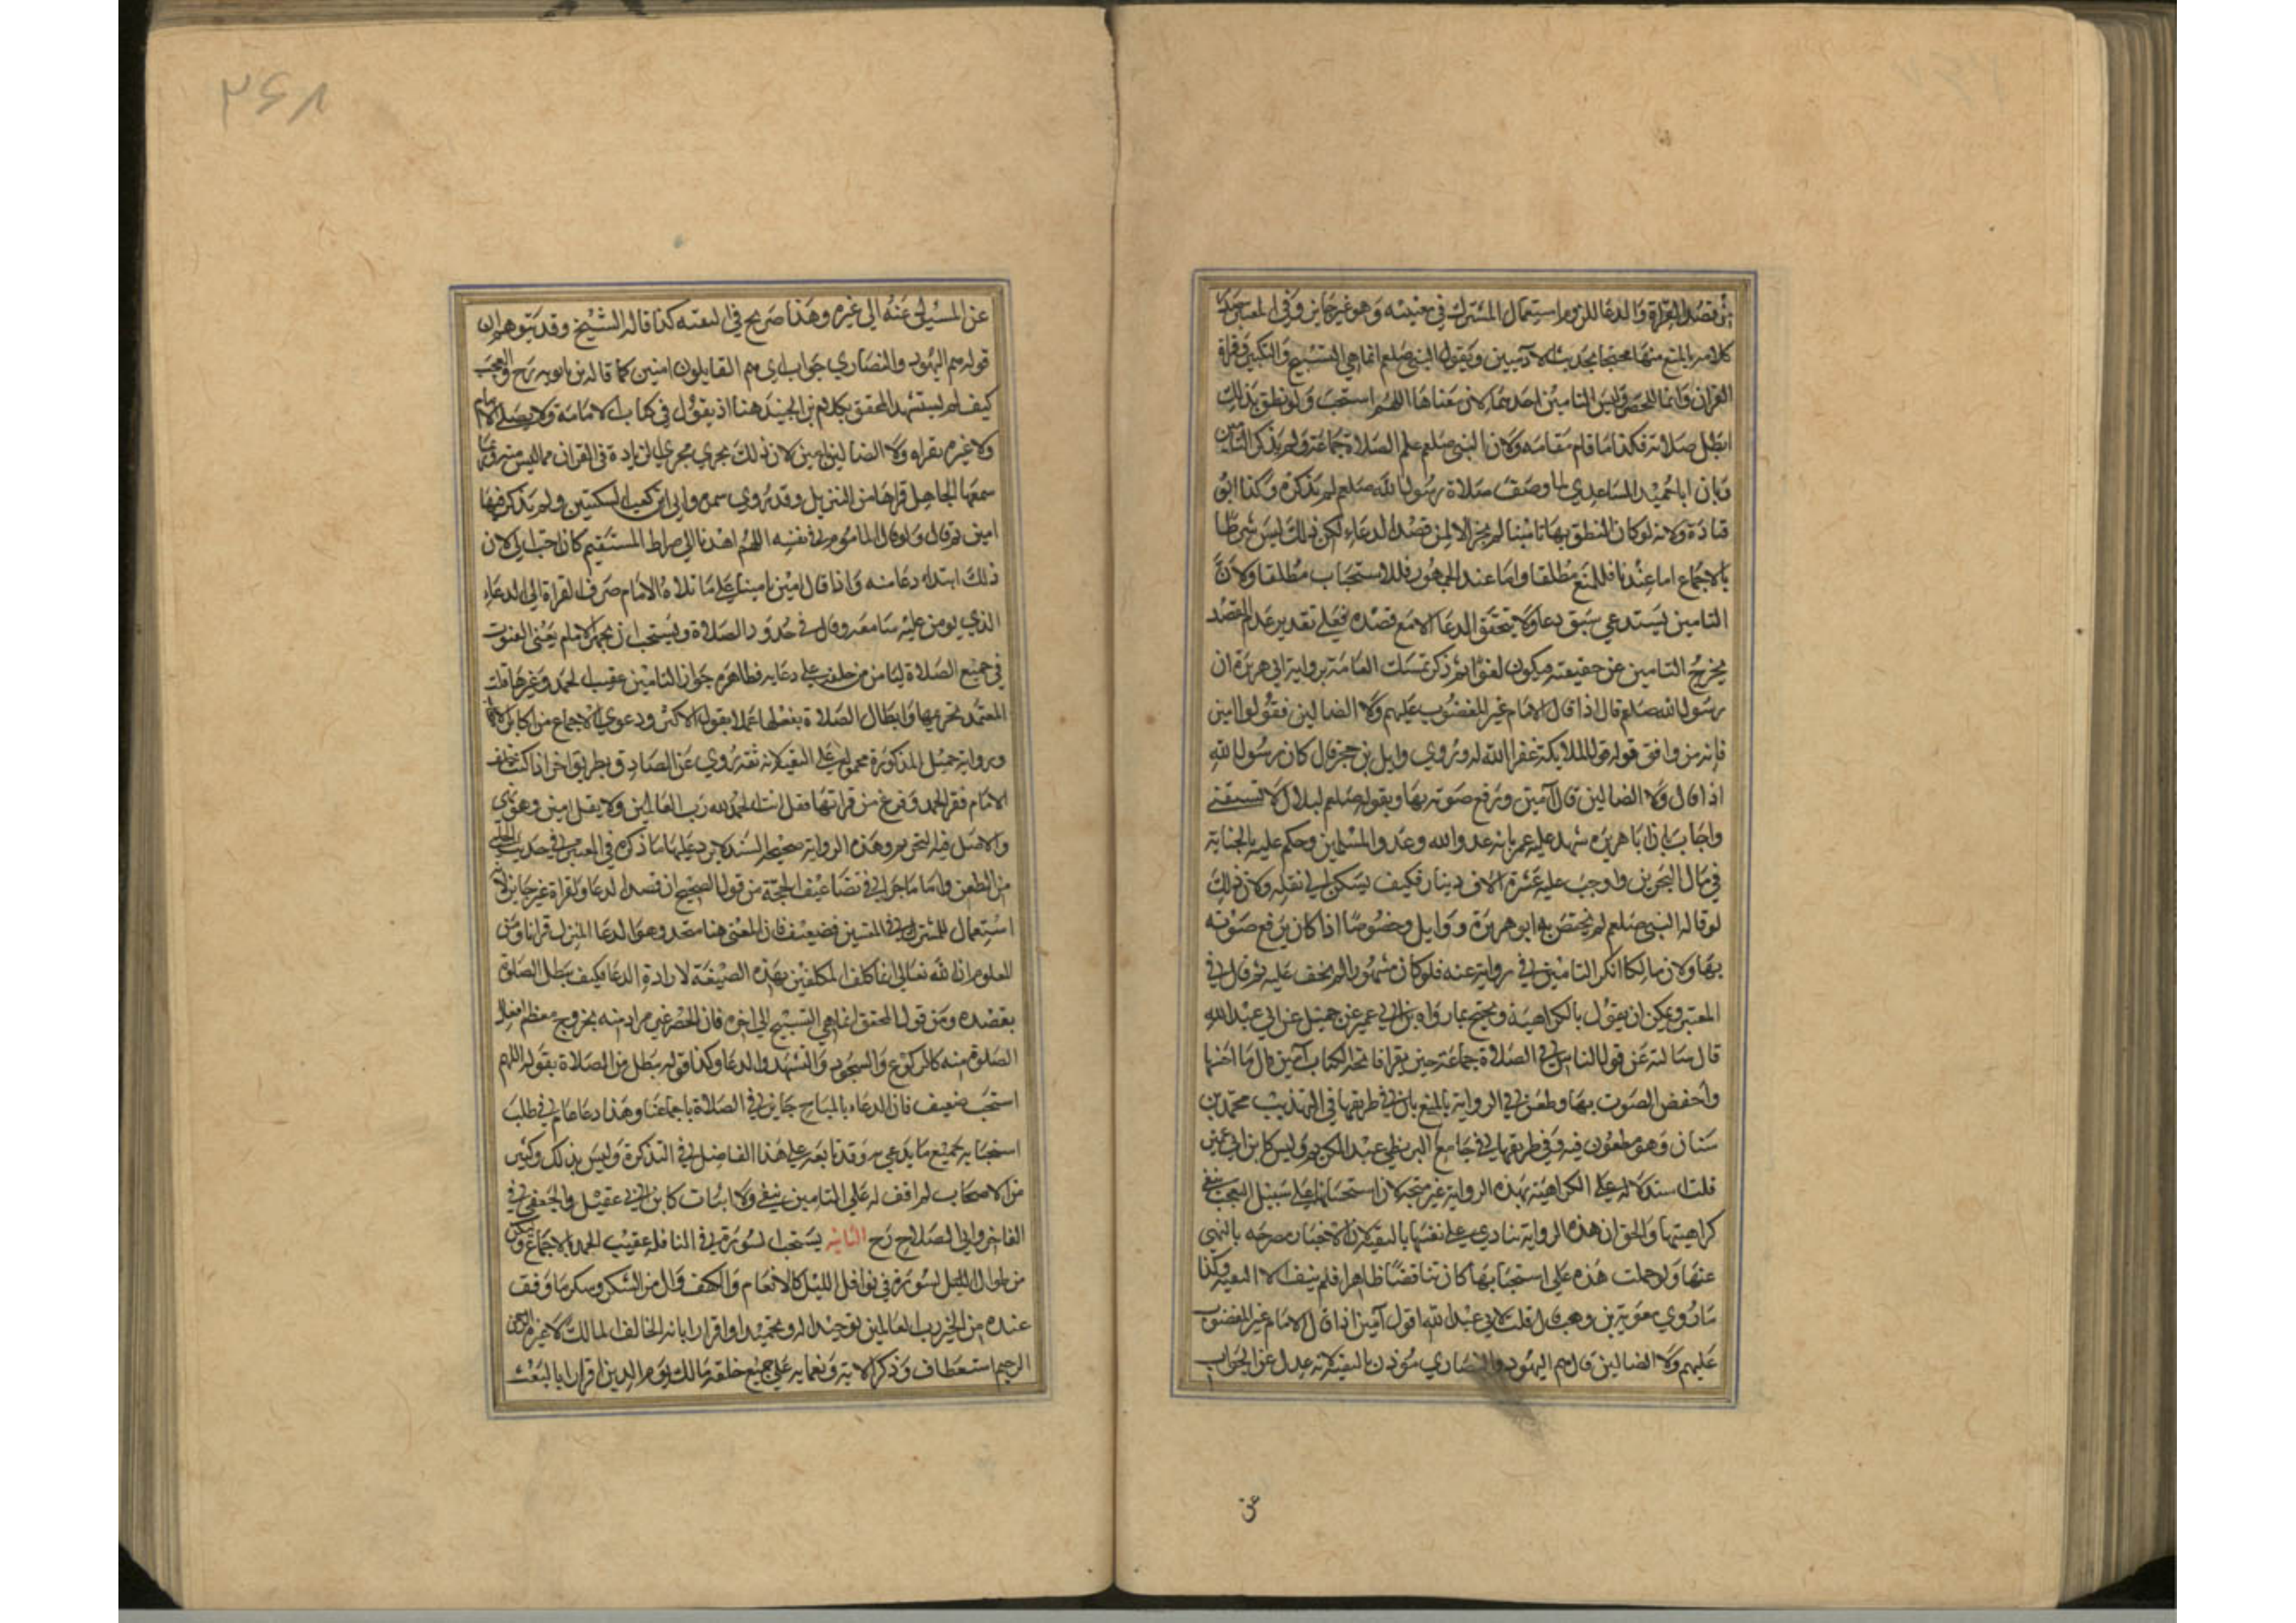 من قصد القراة والدعا للزوم استعمال المشترك في معنييه وهو غير جايز وفي المعتبر
كلامه بالمنع منها محتجا بحديث الآدميين وبقول النبي صلعم انما هي التسبيح والتكبير وقراة
القران وانما للحصر وليس التامين احدهما لان معناها اللهم استجب ولو نطق بذلك
ابطل صلاته فكذا ما قام مقامه ولان النبي صلعم علم الصلاة جماعة ولم يذكر التامين
وبان ابا حميد الساعدي لما وصف صلاة رسول الله صلعم لم يذكره وكذا ابو
قتادة ولانه لو كان النطق بها تامينا لم يجز الا لمن قصد الدعاء لكن ذلك ليس شرطا
بالاجماع اما عندنا فللمنع مطلقا واما عند الجمهور فللاستحباب مطلقا ولان
التامين يستدعي سبق دعا ولا يتحقق الدعا الا مع قصده فعلي تقدير عدم القصد
يخرج التامين عن حقيقته فيكون لغوا ثم ذكر تمسك العامة برواية ابي هريرة ان
رسول الله صلعم قال اذا قال الامام غير المغضوب عليهم ولا الضالين فقولوا امين
فانه من وافق قوله قول الملايكة غفر الله له وروي وايل بن حجر قال كان رسول الله
اذا قال ولا الضالين قال آمين ورفع صوته بها وبقوله صلعم لبلال لا تسبقني
واجاب بان ابا هريره شهد عليه عمر بانه عدو الله وعدو المسلمين وحكم عليه بالجناية
في مال البحرين واوجب عليه عشرة الاف دينار فكيف يسكن الي نقله ولان ذلك
لو قاله النبي صلعم لم يختص به ابو هريرة ووايل وخصوصا اذا كان يرفع صوته
بها ولان مالكا انكر التامين في رواية عنه فلو كان مشهورا لم يخف عليه ثم قال في
المعتبر ويمكن ان يقول بالكراهية ويحتج بما رواه بن ابي عمير عن جميل عن ابي عبد الله
قال سالته عن قول الناس في الصلاة جماعة حين يقرا فاتحة الكتاب آمين قال ما احسنها
واخفض الصوت بها وطعن في الرواية بالمنع بان في طريقها في التهذيب محمد بن
سنان وهو مطعون فيه وفي طريقها في جامع البزنطي عبد الكريم وليس كابن ابي عمير
قلت استدلاله علي الكراهية بهذه الرواية غير متجه لان استحسانها علي سبيل التعجب ينفي
كراهيتها والحق ان هذه الرواية تنادي علي نفسها بالتقية لان الاخبار مصرحه بالنهي
عنها ولو حملت هذه علي استحبابها كان تناقضا ظاهرا فلم يبق الا التقيه وكذا
ما روي معوية بن وهب قال قلت لابي عبد الله اقول آمين اذا قال الامام غير المغضوب
عليهم ولا الضالين قال هم اليهود والنصاري مؤذن بالتقية لانه عدل عن الجواب
عن
٣۶٨
عن المسيول عنه الي غيره وهذا صريح في التقيه كذا قاله الشيخ وقد يتوهم ان
قوله هم اليهود والنصاري جواب اي هم القايلون امين كما قاله بن بابويه رح والعجب
كيف لم يستشهد المحقق بكلام بن الجنيد هنا اذ يقول في كتاب الامامة ولا يصلي الامام
ولا غيره بقراه ولا الضالين امين لان ذلك يجري مجري الزيادة في القران مما ليس منه وربما
سمعها الجاهل قراها من التنزيل وقد روي سمره وابي ابن كعب السكتتين ولم يذكر فيها
امين ثم قال ولو قال الماموم في نفسه اللهم اهدنا الي صراط المستقيم كان احب الي لان
ذلك ابتداء دعا منه واذا قال امين تامينا علي ما تلاه الامام صرف القراة الي الدعاء
الذي يومن عليه سامعه وقال في حدود الصلاة ويستحب ان يجهر الامام يعني القنوت
في جميع الصلاة ليامن من خلفه علي دعايه فظاهره جواز التامين عقيب الحمد وغيرها قلت
المعتمد تحريمها وابطال الصلاة بفعلها عملا بقول الاكثر ودعوي الاجماع من اكابر
ورواية جميل المذكورة محمولة علي التقية لانه ثقة روي عن الصادق بطريق اخر اذا كنت خلف
الامام فقرا الحمد وفرغ من قراتها فقل انت الحمد لله رب العالمين ولا يقل امين وهو نهي
والاصل فيه التحريم وهذه الرواية صحيحة السند لا يرد عليها ما ذكره في المعتبر في حديث الحلبي
من الطعن واما ما جرا في تضاعيف الحجة من قول الصحيح ان قصد الدعا والقراة غير جايز لانه
استعمال للمشترك في المعنيين فضعيف فان المعني هنا متحد وهو الدعا المنزل قرانا ومن
المعلوم ان الله تعالي انما كلف المكلفين بهذه الصيغة لارادة الدعا فكيف تبطل الصلوة
بقصده ومن قول المحقق انما هي التسبيح الي اخره فان الحصر غير مراد منه بخروج معظم افعال
الصلوة منه كالركوع والسجود والتشهد والدعا وكذا قوله تبطل من الصلاة بقوله اللهم
استجب ضعيف فان الدعاء بالمباح جايز في الصلاة باجماعنا وهذا دعا عام في طلب
استجابه جميع ما يدعي به وقد تابعه علي هذا الفاضل في التذكرة وليس بذلك وكثير
من الاصحاب لم اقف له علي التامين بنفي ولا اثبات كابن ابي عقيل والجعفي في
الفاخر وابي الصلاح رح الثانيه يستحب السورة في النافلة عقيب الحمد بالاجماع وليكن
من طوال السور في نوافل الليل كالانعام والكهف وال من الشكر وسكر ما وفق
عنده من الخير رب العالمين توحيدا له وتحميدا واقرارا بانه الخالق المالك لا غيره الرحمن
الرحيم استعطاف وذكر الآيه ونعمايه علي جميع خلقه مالك يوم الدين اقرارا بالبعث